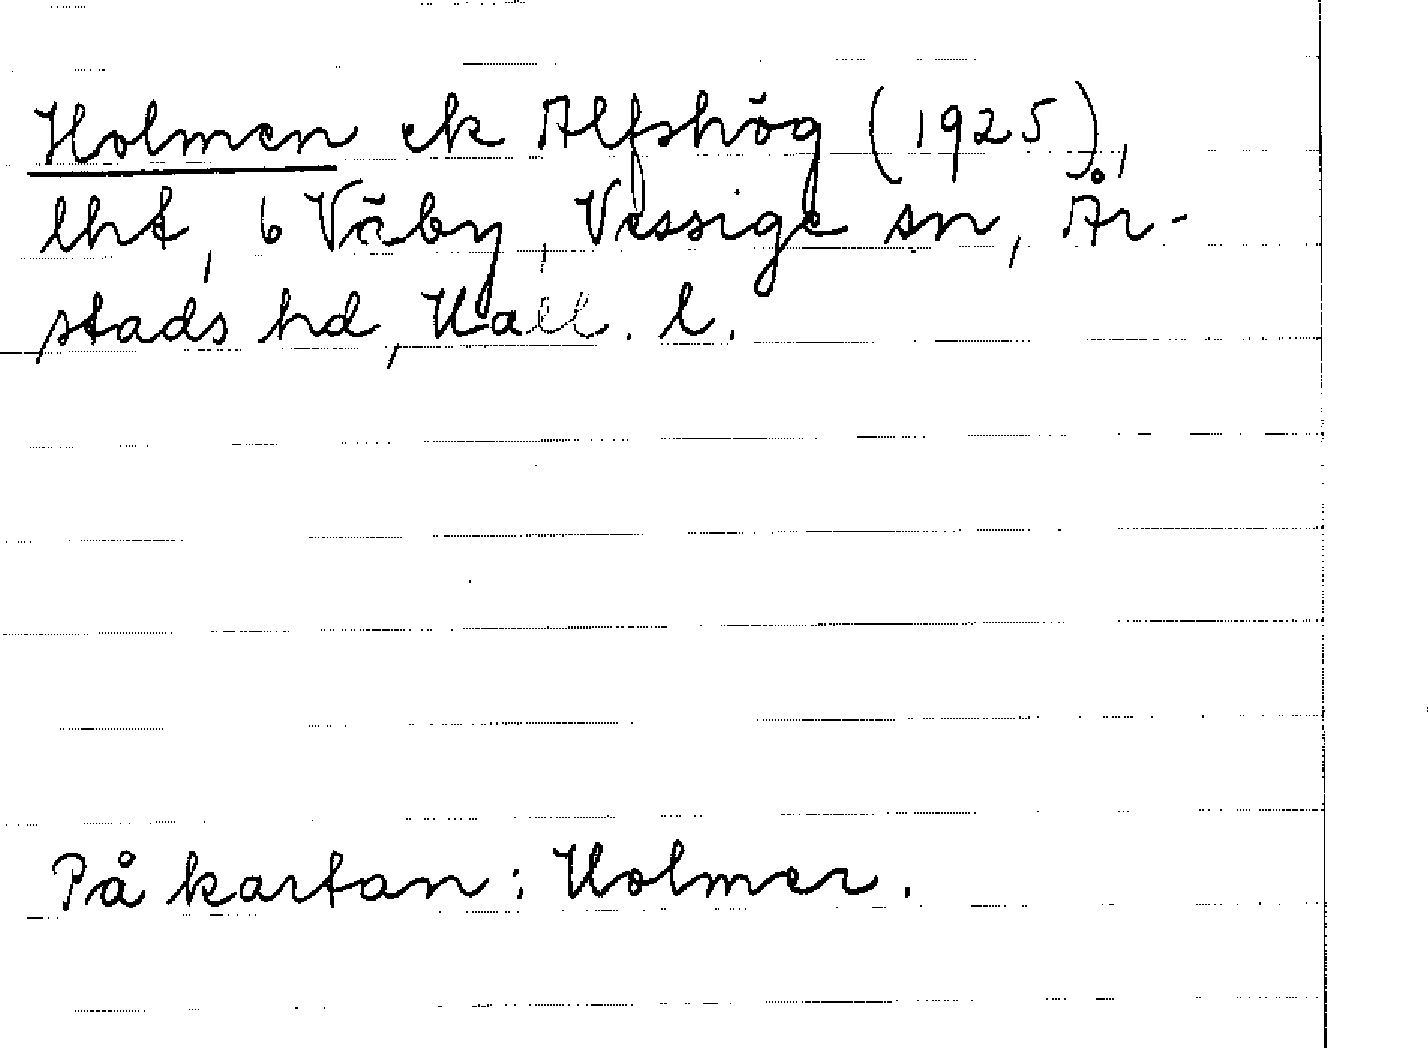 Holmen ek Alfshög (1925),
lht, 6 Väby, Vessige sn, År-
stads hd, Hall. l.
På kartan: Holmer.